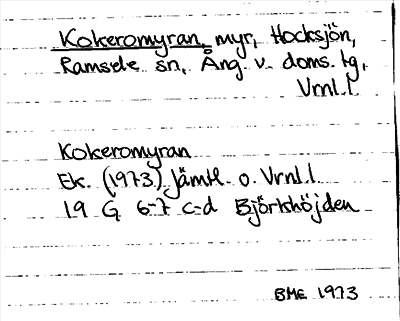 Kokeromyran, myr, Hocksjön,
Ramsele sn, Ång. v. doms. tg,
Vrnl. l.
Kokeromyran
Ek. (1973) Jämtl. o. Vrnl. l.
19 G 6-7 c-d Björkhöjden
BME 1973